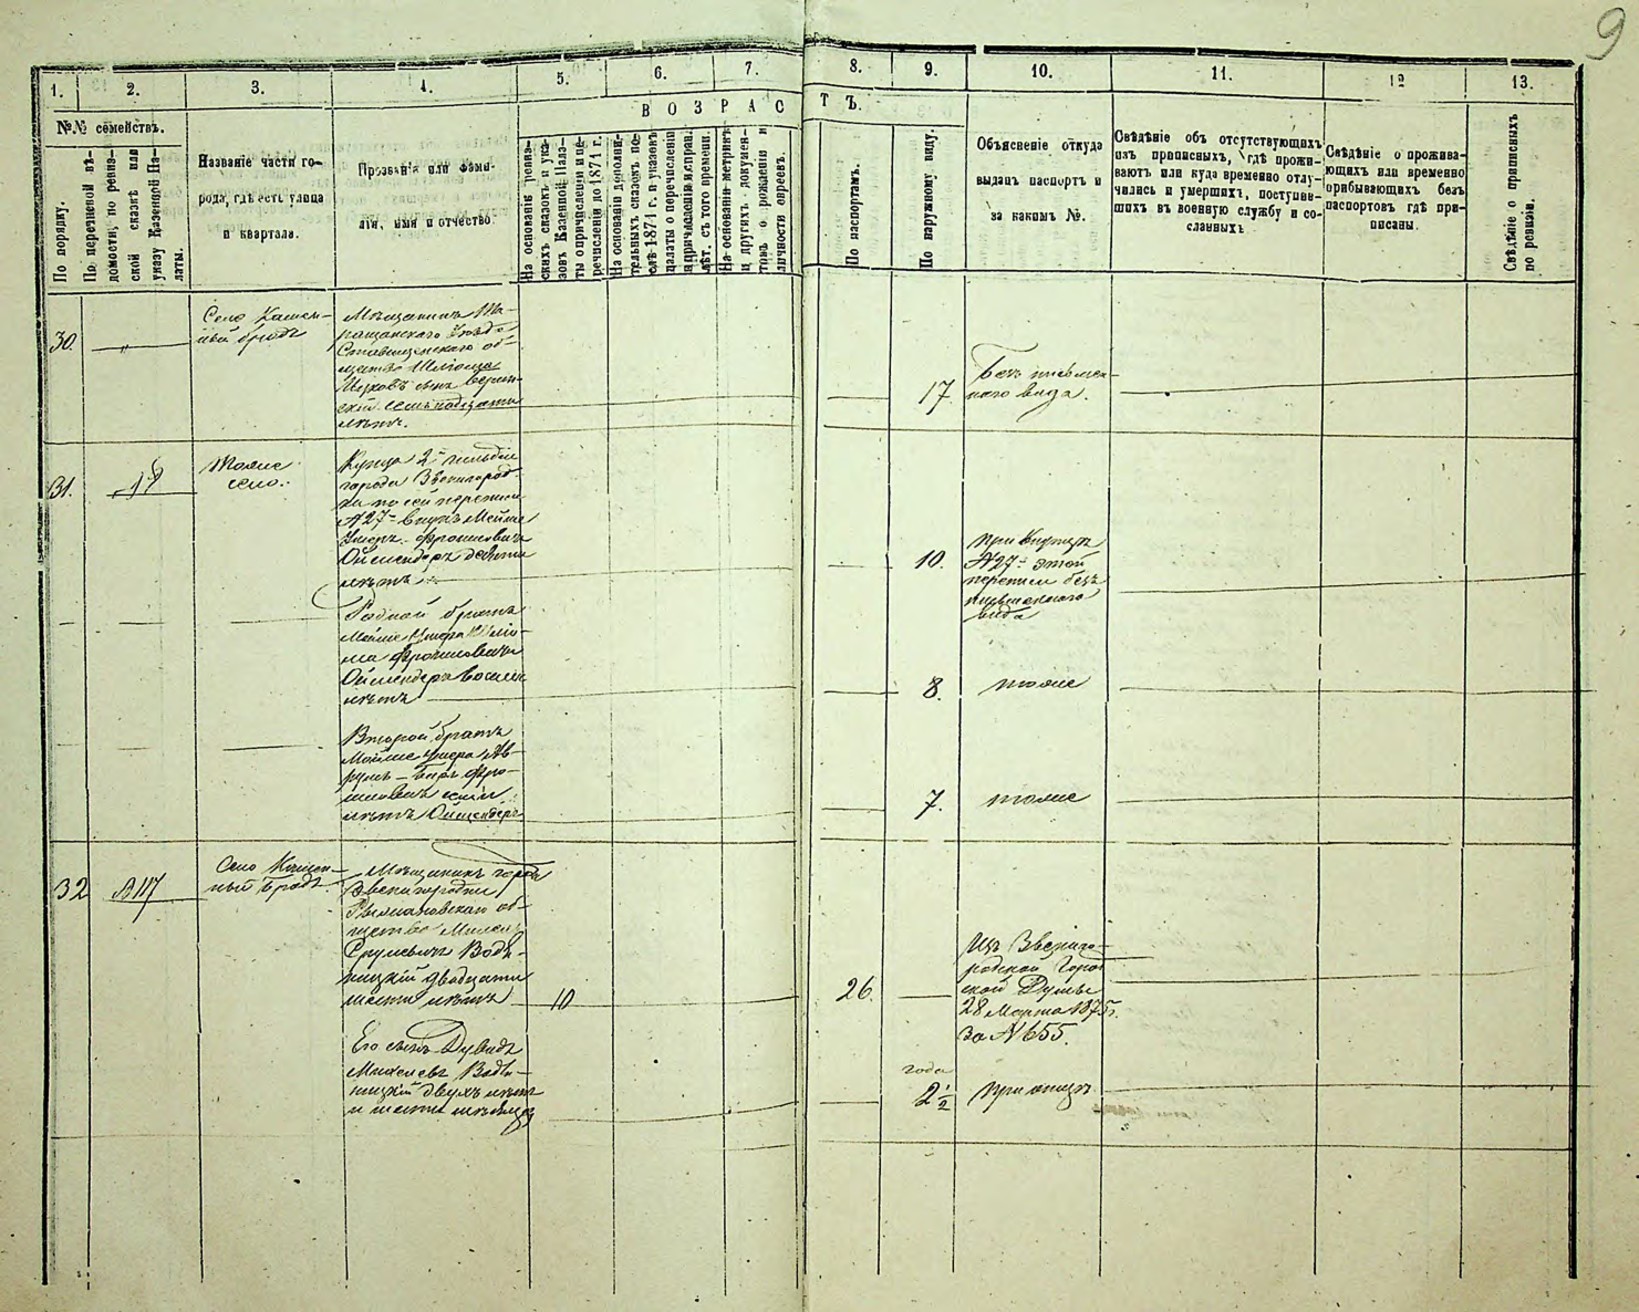 9
1.
2.
3.
4.
5.
6.
7.
8.
9.
10.
11.
12
13.
№№ семействъ.
По порядку.
По перечневой вѣ-
домости, по ревиз-
ской сказкѣ или
указу Казенной Па-
латы.
Названіе части го-
рода, гдѣ есть улица
и квартала.
Прозванія или фами-
лія, имя и отчество.
ВОЗРАСТЪ.
На основаніи ревиз-
скихъ сказокъ и ука-
зовъ Казенной Пала-
ты о причисленіи и пе-
речисленіи до 1871 г.
На основаніи дополни-
тельныхъ сказокъ по-
слѣ 1871 г. и указовъ
палаты о перечисленіи
и причисленіи
лѣт. съ того времени.
На основаніи метрикъ
и другихъ докумен-
товъ о рожденіи и
личности евреевъ.
По паспортамъ.
По наружному виду.
Объясненіе откуда
выданъ паспортъ и
за какимъ №.
Свѣдѣніе объ отсутствующихъ
изъ приписныхъ, гдѣ прожи-
ваютъ или куда временно отлу-
чились и умершихъ, поступив-
шихъ въ военную службу и со-
сланныхъ
Свѣдѣніе о прожива-
ющихъ или временно
прибывающихъ безъ
паспортовъ гдѣ при-
писаны.
Свѣдѣніе о приписныхъ
по ревизіи.
30.
"
Село Камен-
ный бродъ
Мѣщанинъ Та-
ращанскаго Уѣзда
Ставищенскаго об-
щества
Ицковъ сынъ
семьнадцати
лѣтъ.
17
Безъ письмен-
наго вида.
31.
Тоже
село.
Купца 2й гильдіи
города Звенигород-
ки по сей переписи
№ 27й внукъ
Ушеръ Фроимовичъ
девяти
лѣтъ
10.
При Купцѣ
№ 27й этой
переписи безъ
письменнаго
вида
Родной братъ
Мойше Ушера Шлió-
ма Фроимовичъ
восьми
лѣтъ
8.
тоже
Второй братъ
Мойше Ушера Ав-
румъ - Беръ Фро-
имовичъ семи
лѣтъ
7.
тоже
32
№ 117
Село Камен-
ный Бродъ.
Мѣщанинъ города
Звенигородки
об-
щества
Срулевичъ Водя-
ницкій двадцати
шести лѣтъ
10
26.
Изъ Звениго-
родской Город-
ской Думы
28 Марта 1875г.
за № 655.
Его сынъ Дувидъ
Водя-
ницкій двухъ лѣтъ
и шести мѣсяцевъ
года
2 1/2
При отцѣ